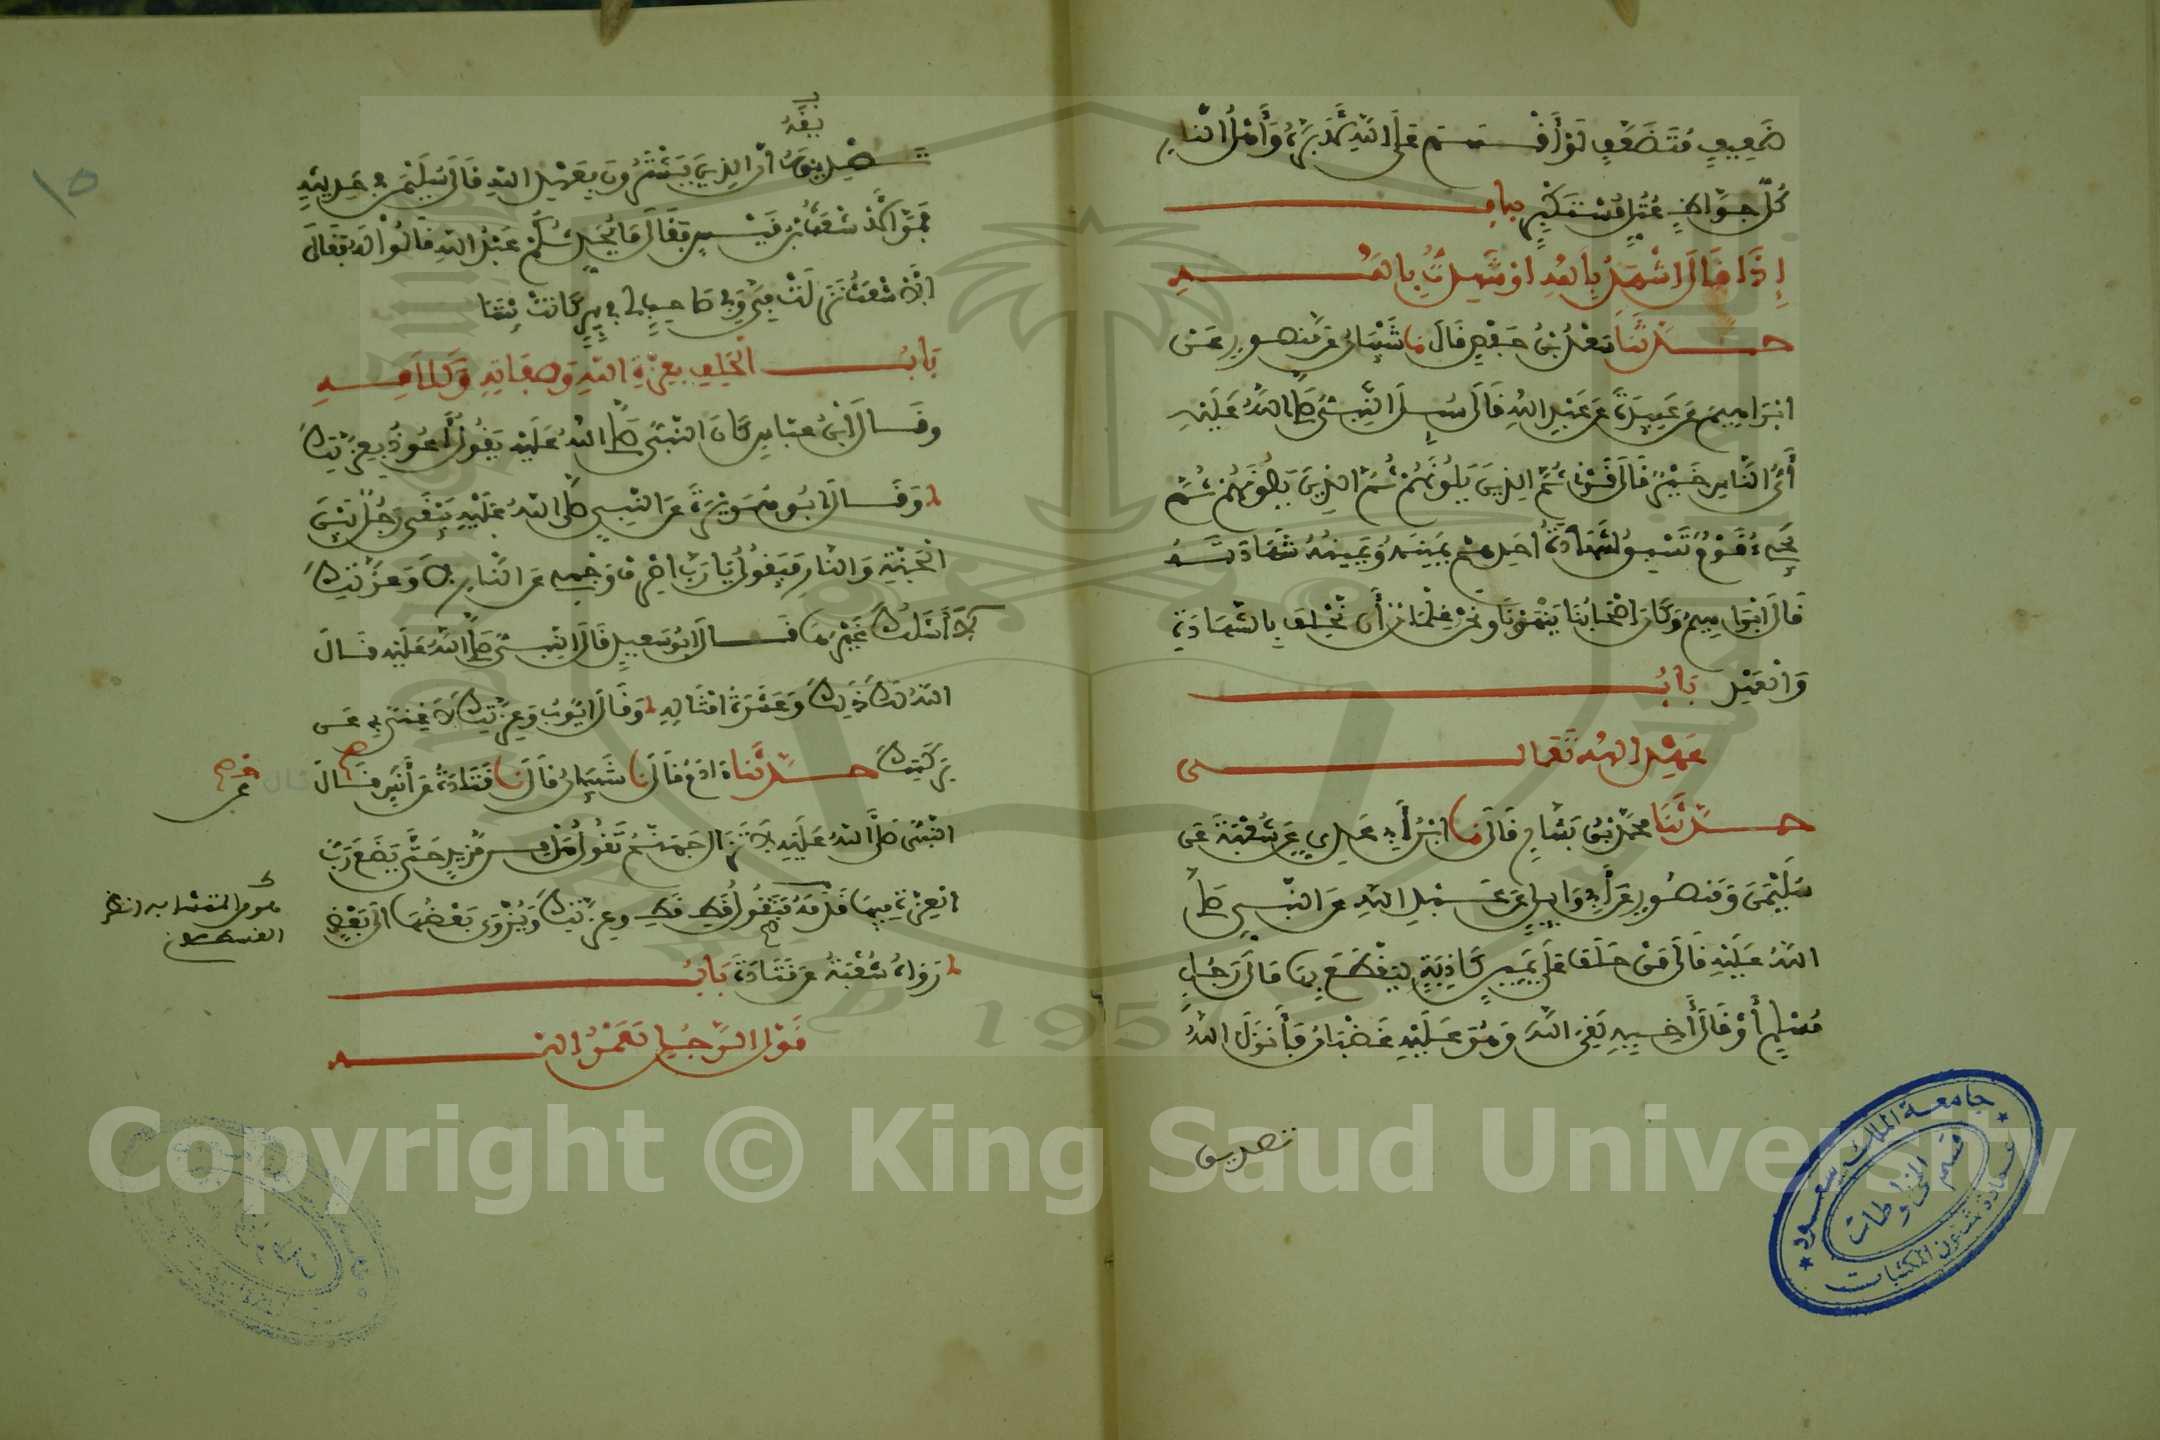 ضَعِيفٍ مُتَضَعَّفٍ لَوْ أَقْسَمَ عَلَى اللهِ لَأَبَرَّهُ وَأَهْلُ النَّارِ
كُلُّ جَوَّاظٍ عُتُلٍّ مُسْتَكْبِرٍ بابٌ
إِذَا قَالَ أَشْهَدُ بِاللهِ أَوْ شَهِدْتُ بِاللهِ
حَدَّثَنَا سَعْدُ بْنُ حَفْصٍ قَالَ نا شَيْبَانُ عَنْ مَنْصُورٍ عَنْ
ابْرَاهِيمَ عَنْ عَبِيدَةَ عَنْ عَبْدِ اللهِ قَالَ سُئِلَ النَّبِيُّ صَلَّى اللهُ عَلَيْهِ
أَيُّ النَّاسِ خَيْرٌ قَالَ قَرْنِي ثُمَّ الذِينَ يَلُونَهُمْ ثُمَّ الذِينَ يَلُونَهُمْ ثُمَّ
يَجِيءُ قَوْمٌ تَسْبِقُ شَهَادَةُ أَحَدِهِمْ يَمِينَهُ وَيَمِينُهُ شَهَادَتَهُ
قَالَ ابْرَاهِيمُ وَكَانَ أَصْحَابُنَا يَنْهَوْنَنَا وَنَحْنُ غِلْمَانٌ أَن نَّحْلِفَ بِالشَّهَادَةِ
وَالْعَهْدِ بَابُ
عَهْدِ اللهِ تَعَالَى
حَدَّثَنَا مُحَمَّدُ بْنُ بَشَّارٍ قَالَ نا ابْنُ أَبِي عَدِيٍّ عَنْ شُعْبَةَ عَنْ
سُلَيْمَنَ وَمَنْصُورٍ عَنْ أَبِي وَائِلٍ عَنْ عَبْدِ اللهِ عَنِ النَّبِيِّ صَلَّى
اللهُ عَلَيْهِ قَالَ مَنْ حَلَفَ عَلَى يَمِينٍ كَاذِبَةٍ لِيَقْطَعَ بِهَا مَالَ رَجُلٍ
مُسْلِمٍ أَوْ قَالَ أَخِيهِ لَقِيَ اللهَ وَهُوَ عَلَيْهِ غَضْبَانُ فَأَنْزَلَ اللهُ
تصديق
بعد
تَصْدِيقَهُ انَّ الذِينَ يَشْتَرُونَ بِعَهْدِ اللهِ قَالَ سُلَيْمَنُ فِي حَدِيثِهِ
فَمَرَّ الأَشْعَثُ بْنُ قَيْسٍ فَقَالَ مَا يُحَدِّثُكُمْ عَبْدُ اللهِ قَالُوا لَهُ فَقَالَ
الأَشْعَثُ نَزَلَتْ فِيَّ وَفِي صَاحِبٍ لِي فِي بِيرٍ كَانَتْ بَيْنَنَا
بَابُ الْحَلِفِ بِعِزَّةِ اللهِ وَصِفَاتِهِ وَكَلَامِهِ
وَقَالَ ابْنُ عَبَّاسٍ كَانَ النَّبِيُّ صَلَّى اللهُ عَلَيْهِ يَقُولُ أَعُوذُ بِعِزَّتِكَ
وَقَالَ أَبُو هُرَيْرَةَ عَنِ النَّبِيِّ صَلَّى اللهُ عَلَيْهِ يَبْقَى رَجُلٌ بَيْنَ
الْجَنَّةِ وَالنَّارِ فَيَقُولُ يَا رَبِّ اصْرِفْ وَجْهِي عَنِ النَّارِ لَا وَعِزَّتِكَ
لَا أَسْأَلُكَ غَيْرَهَا قَالَ أَبُو سَعِيدٍ قَالَ النَّبِيُّ صَلَّى اللهُ عَلَيْهِ قَالَ
اللهُ لَكَ ذَلِكَ وَعَشَرَةُ أَمْثَالِهِ وَقَالَ أَيُّوبُ وَعِزَّتِكَ لَا غِنَى بِي عَنْ
بَرَكَتِكَ حَدَّثَنَا ءَادَمُ قَالَ نا شَيْبَانُ قَالَ نا قَتَادَةُ عَنْ أَنَسٍ قَالَ
النَّبِيُّ صَلَّى اللهُ عَلَيْهِ لَا تَزَالُ جَهَنَّمُ تَقُولُ هَلْ مِن مَّزِيدٍ حَتَّى يَضَعَ رَبُّ
الْعِزَّةِ فِيهَا قَدَمَهُ فَتَقُولُ قَطْ قَطْ وَعِزَّتِكَ وَيُزْوَى بَعْضُهَا الَى بَعْضٍ
رَوَاهُ شُعْبَةُ عَنْ قَتَادَةَ بَابُ
قَوْلِ الرَّجُلِ لَعَمْرُ اللهِ
هو من المتشابه انظر
القسطلاني
١٥
جامعة الملك سعود
قسم المخطوطات
عمادة شئون المكتبات
1957
Copyright © King Saud University